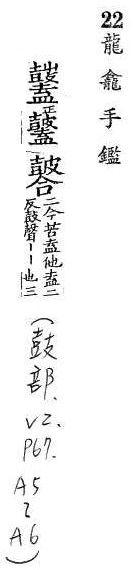 22 龍龕手鑑
正
二今苦盍他盍二
反皷聲——也三
(鼓部. V2. P67. A5 ~ A6)